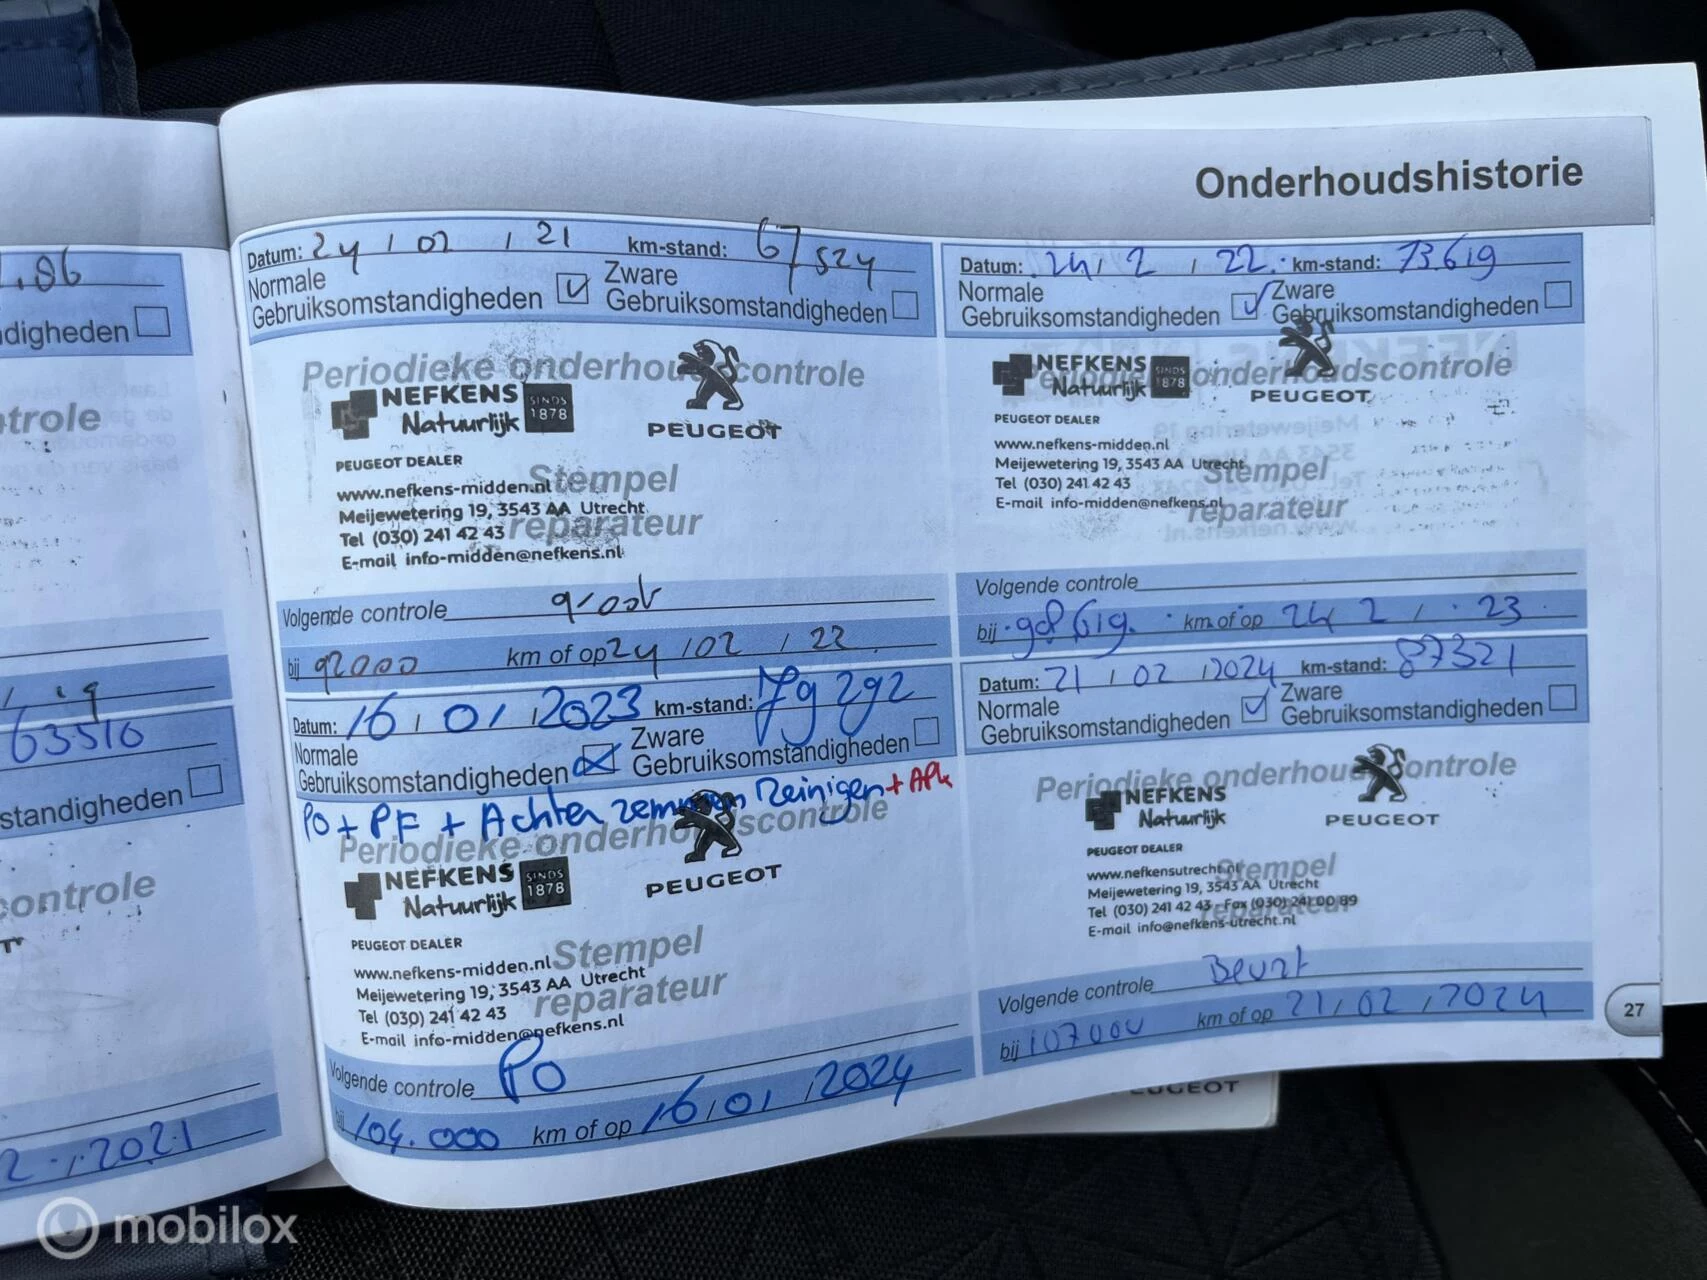 Onderhoudshistorie
1.86
digheden
trole
19
63510
standigheden
controle
2.1.2021
Datum: 24 / 02 / 21 km-stand: 67524
Normale
Gebruiksomstandigheden
Zware
Gebruiksomstandigheden
Periodieke onderhoudscontrole
NEFKENS SINDS
Natuurlijk 1878
PEUGEOT
PEUGEOT DEALER
Stempel
www.nefkens-midden.nl
Meijewetering 19, 3543 AA Utrecht
reparateur
Tel (030) 241 42 43
E-mail info-midden@nefkens.nl
Volgende controle groot
bij 92000 km of op 24 / 02 / 22
Datum: 16 / 01 / 2023 km-stand: 79292
Normale
Gebruiksomstandigheden
Zware
Gebruiksomstandigheden
PO + PF + Achter remmen Reinigen + APK
Periodieke onderhoudscontrole
NEFKENS SINDS
Natuurlijk 1878
PEUGEOT
PEUGEOT DEALER
Stempel
www.nefkens-midden.nl
Meijewetering 19, 3543 AA Utrecht
reparateur
Tel (030) 241 42 43
E-mail info-midden@nefkens.nl
Volgende controle PO
bij 104.000 km of op 16 / 01 / 2024
Datum: 24 / 2 / 22 km-stand: 73619
Normale
Gebruiksomstandigheden
Zware
Gebruiksomstandigheden
NEFKENS SINDS
Natuurlijk 1878
Periodieke onderhoudscontrole
PEUGEOT
PEUGEOT DEALER
www.nefkens-midden.nl
Meijewetering 19, 3543 AA Utrecht
Stempel
Tel (030) 241 42 43
E-mail info-midden@nefkens.nl
reparateur
Volgende controle
bij 98619 km of op 24 / 2 / 23
Datum: 21 / 02 / 2024 km-stand: 87321
Normale
Gebruiksomstandigheden
Zware
Gebruiksomstandigheden
Periodieke onderhoudscontrole
NEFKENS
Natuurlijk
PEUGEOT
PEUGEOT DEALER
Stempel
www.nefkensutrecht.nl
Meijewetering 19, 3543 AA Utrecht
Tel (030) 241 42 43 - Fax (030) 241 00 89
reparateur
E-mail info@nefkens-utrecht.nl
Volgende controle Beurt
bij 107000 km of op 21 / 02 / 2024
27
PEUGEOT
mobilox